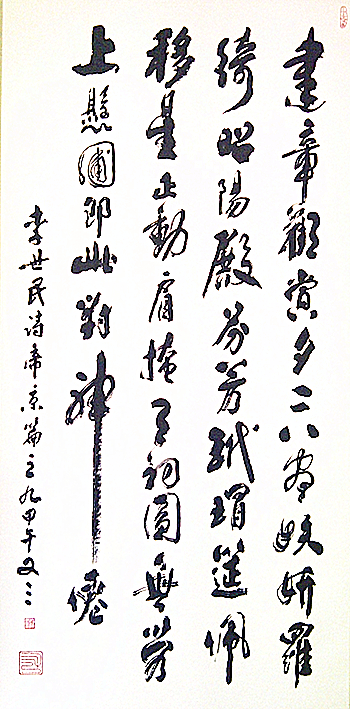 建章歡賞夕二八尽妖妍羅
綺昭陽殿芬芳玳瑁筵佩
移星正動扇掩月初圓無勞
上懸圃即此對神僊
李世民诗帝京篇之九甲午又三